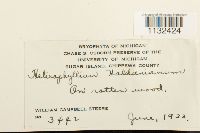 1132424
BRYOPHYTA OF MICHIGAN
CHASE S. OSBORN PRESERVE OF THE
UNIVERSITY OF MICHIGAN
SUGAR ISLAND, CHIPPEWA COUNTY
Heterophyllium Haldanianum
On rotten wood.
WILLIAM CAMPBELL STEERE
No. 3442 June, 1933.